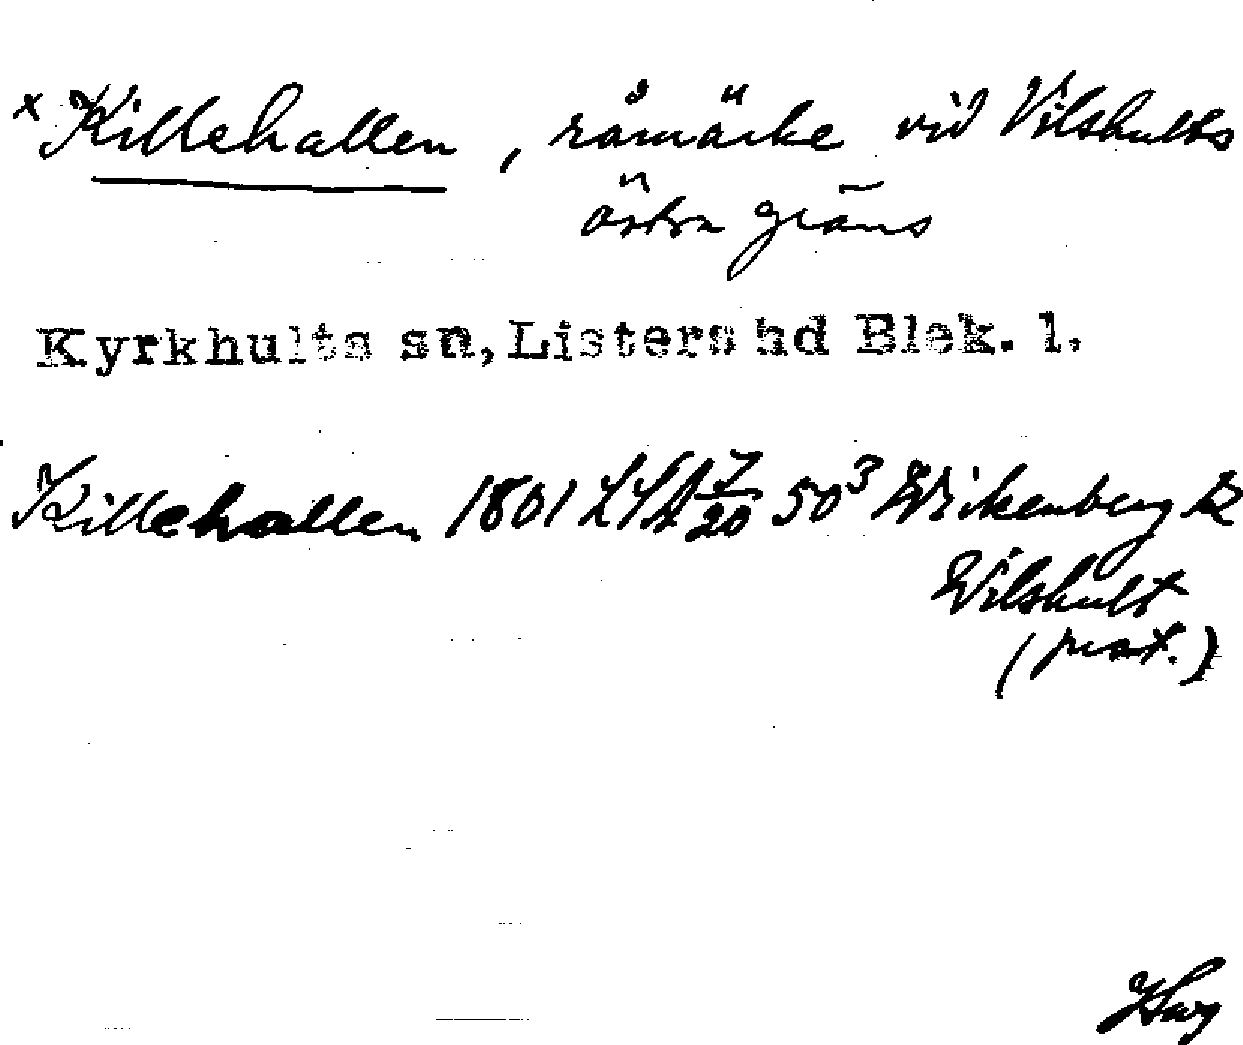 x Killehallen, råmärke vid Vilshults
östra gräns
Kyrkhults sn, Listers hd Blek. l.
Killehallen 1801 LSA 7/20 50³ Wikenberg
Wilshult
(prot.)